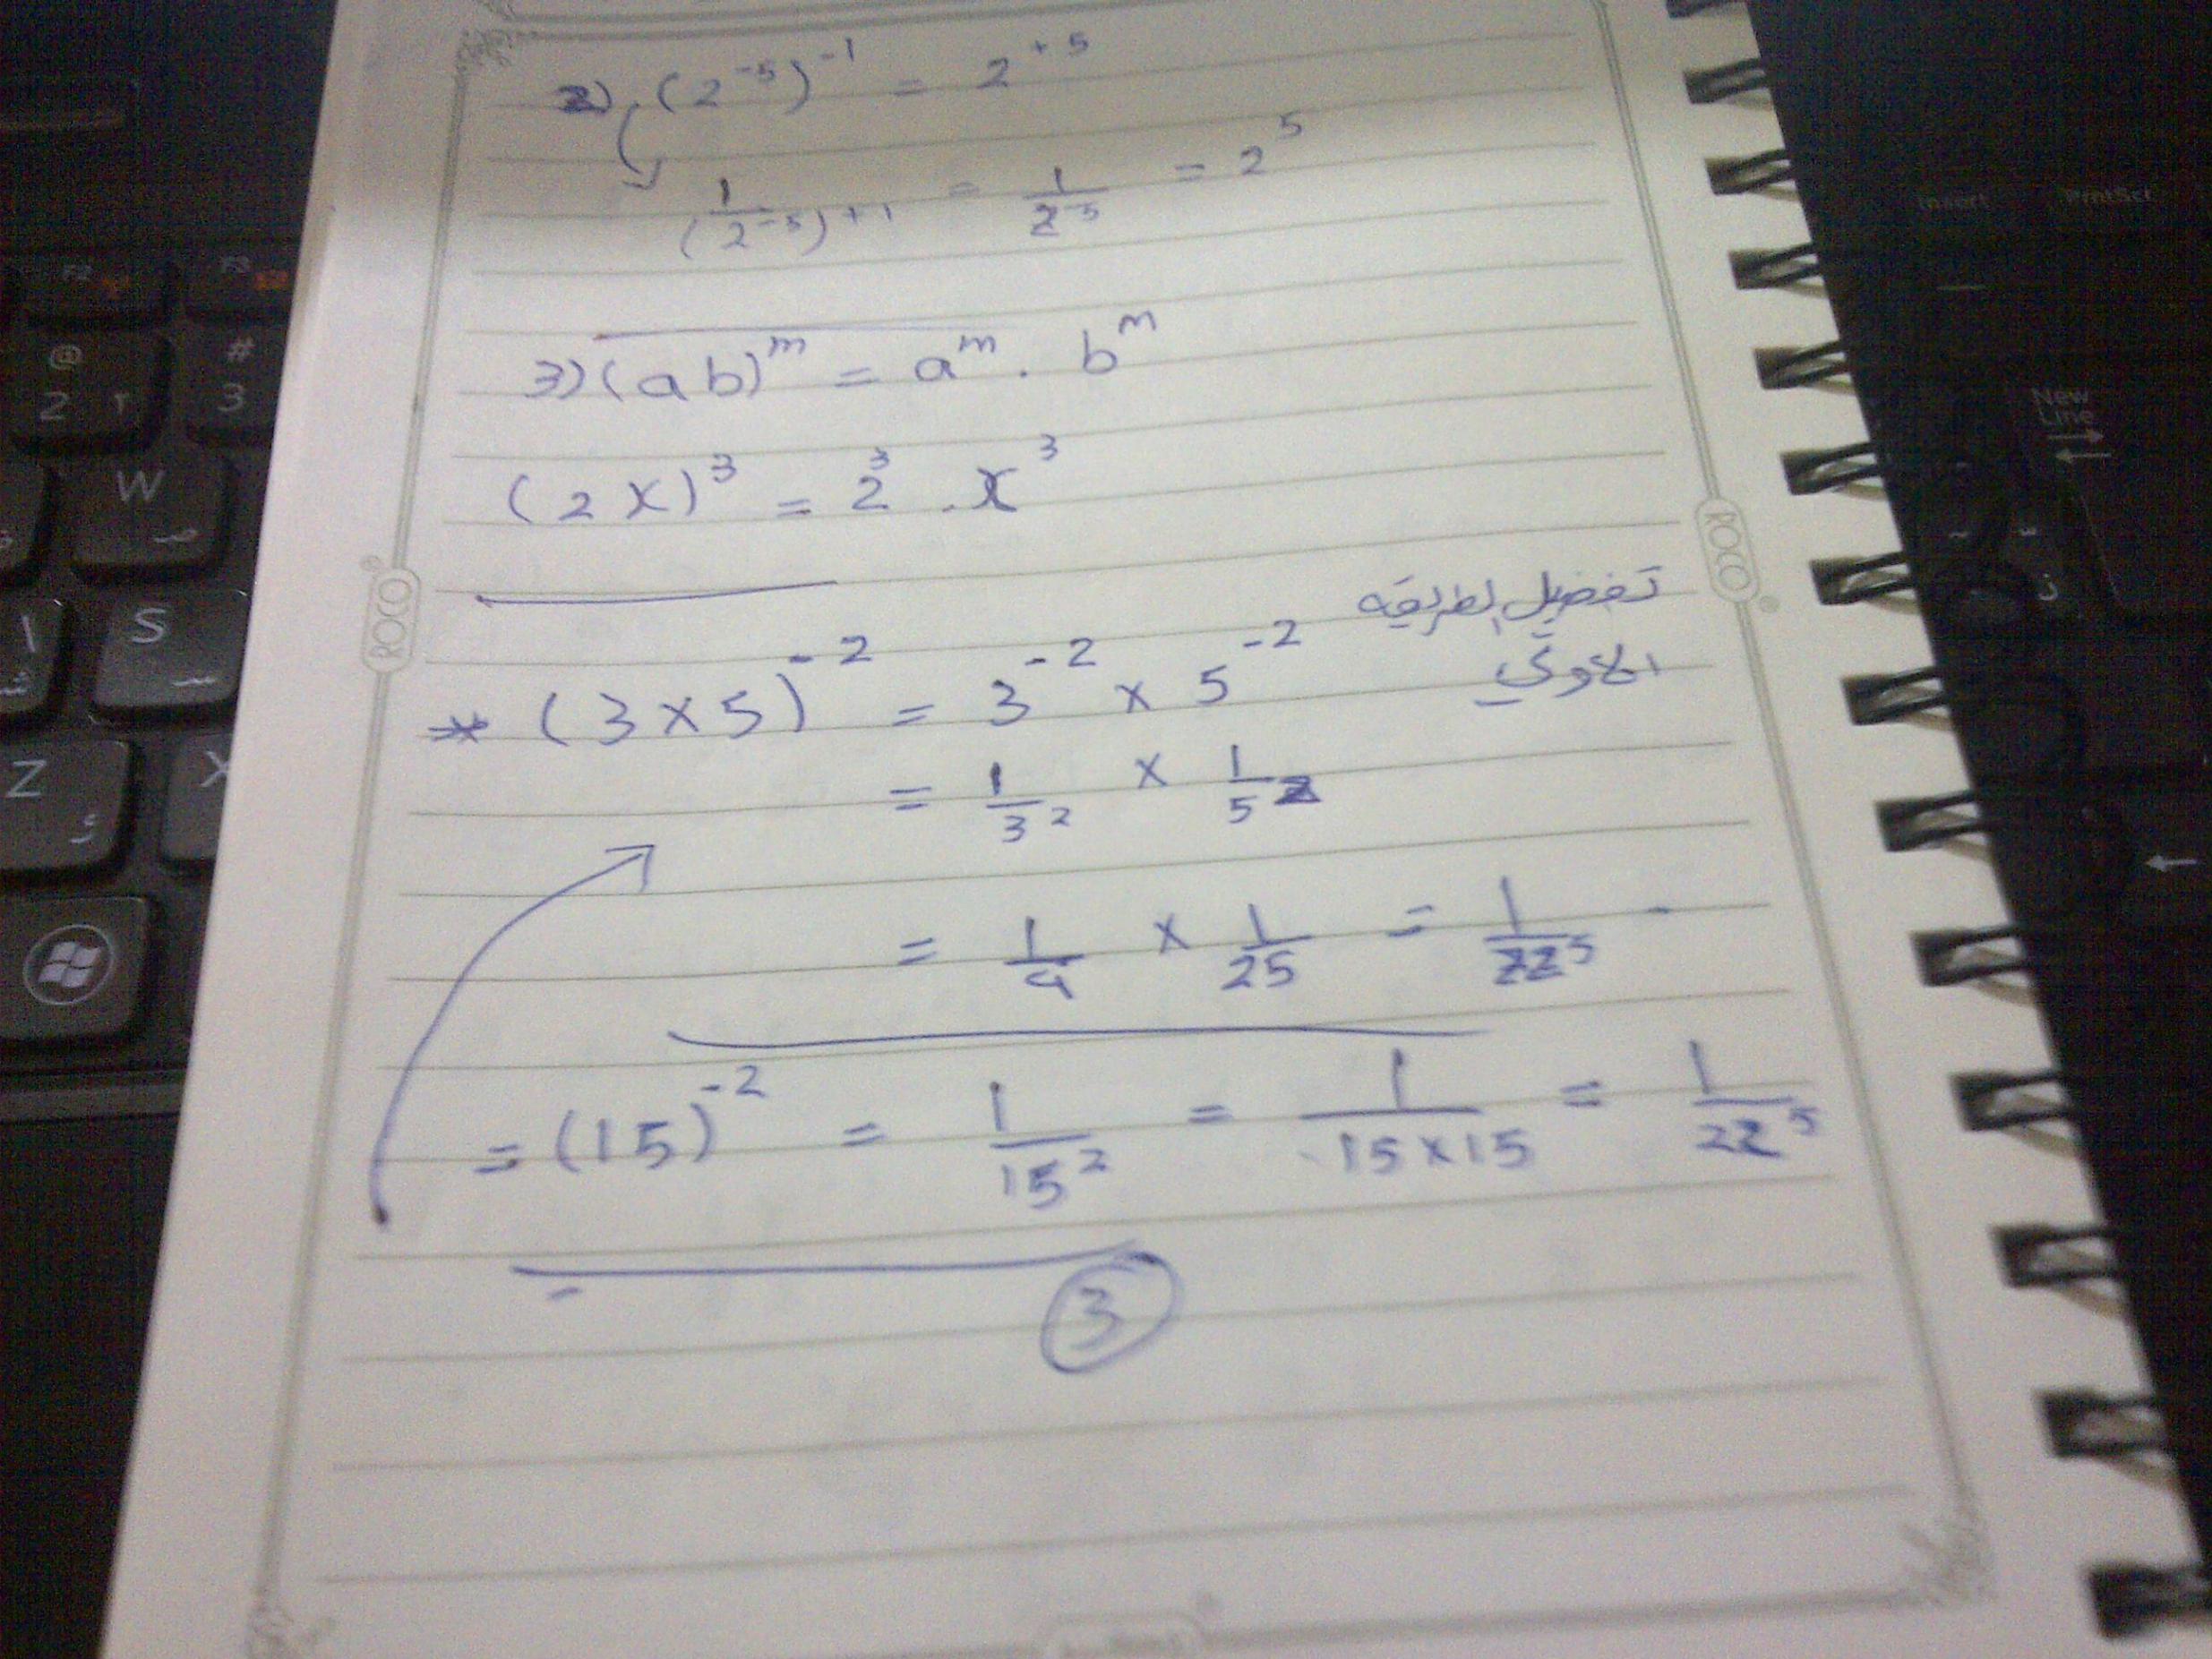 2) (2⁻⁵)⁻¹ = 2⁺⁵
1/(2⁻⁵)⁺¹ = 1/2⁻⁵ = 2⁵
3) (ab)ᵐ = aᵐ . bᵐ
(2x)³ = 2³ . x³
تفضيل الطريقه
الاولي
* (3×5)⁻² = 3⁻² × 5⁻²
= 1/3² × 1/5²
= 1/9 × 1/25 = 1/225
= (15)⁻² = 1/15² = 1/15×15 = 1/225
3
ROCO
ROCO
F2
F3
@
2 ٢
#
3
W
ص
S
س
Z
X
Insert
PrntScr
New
Line